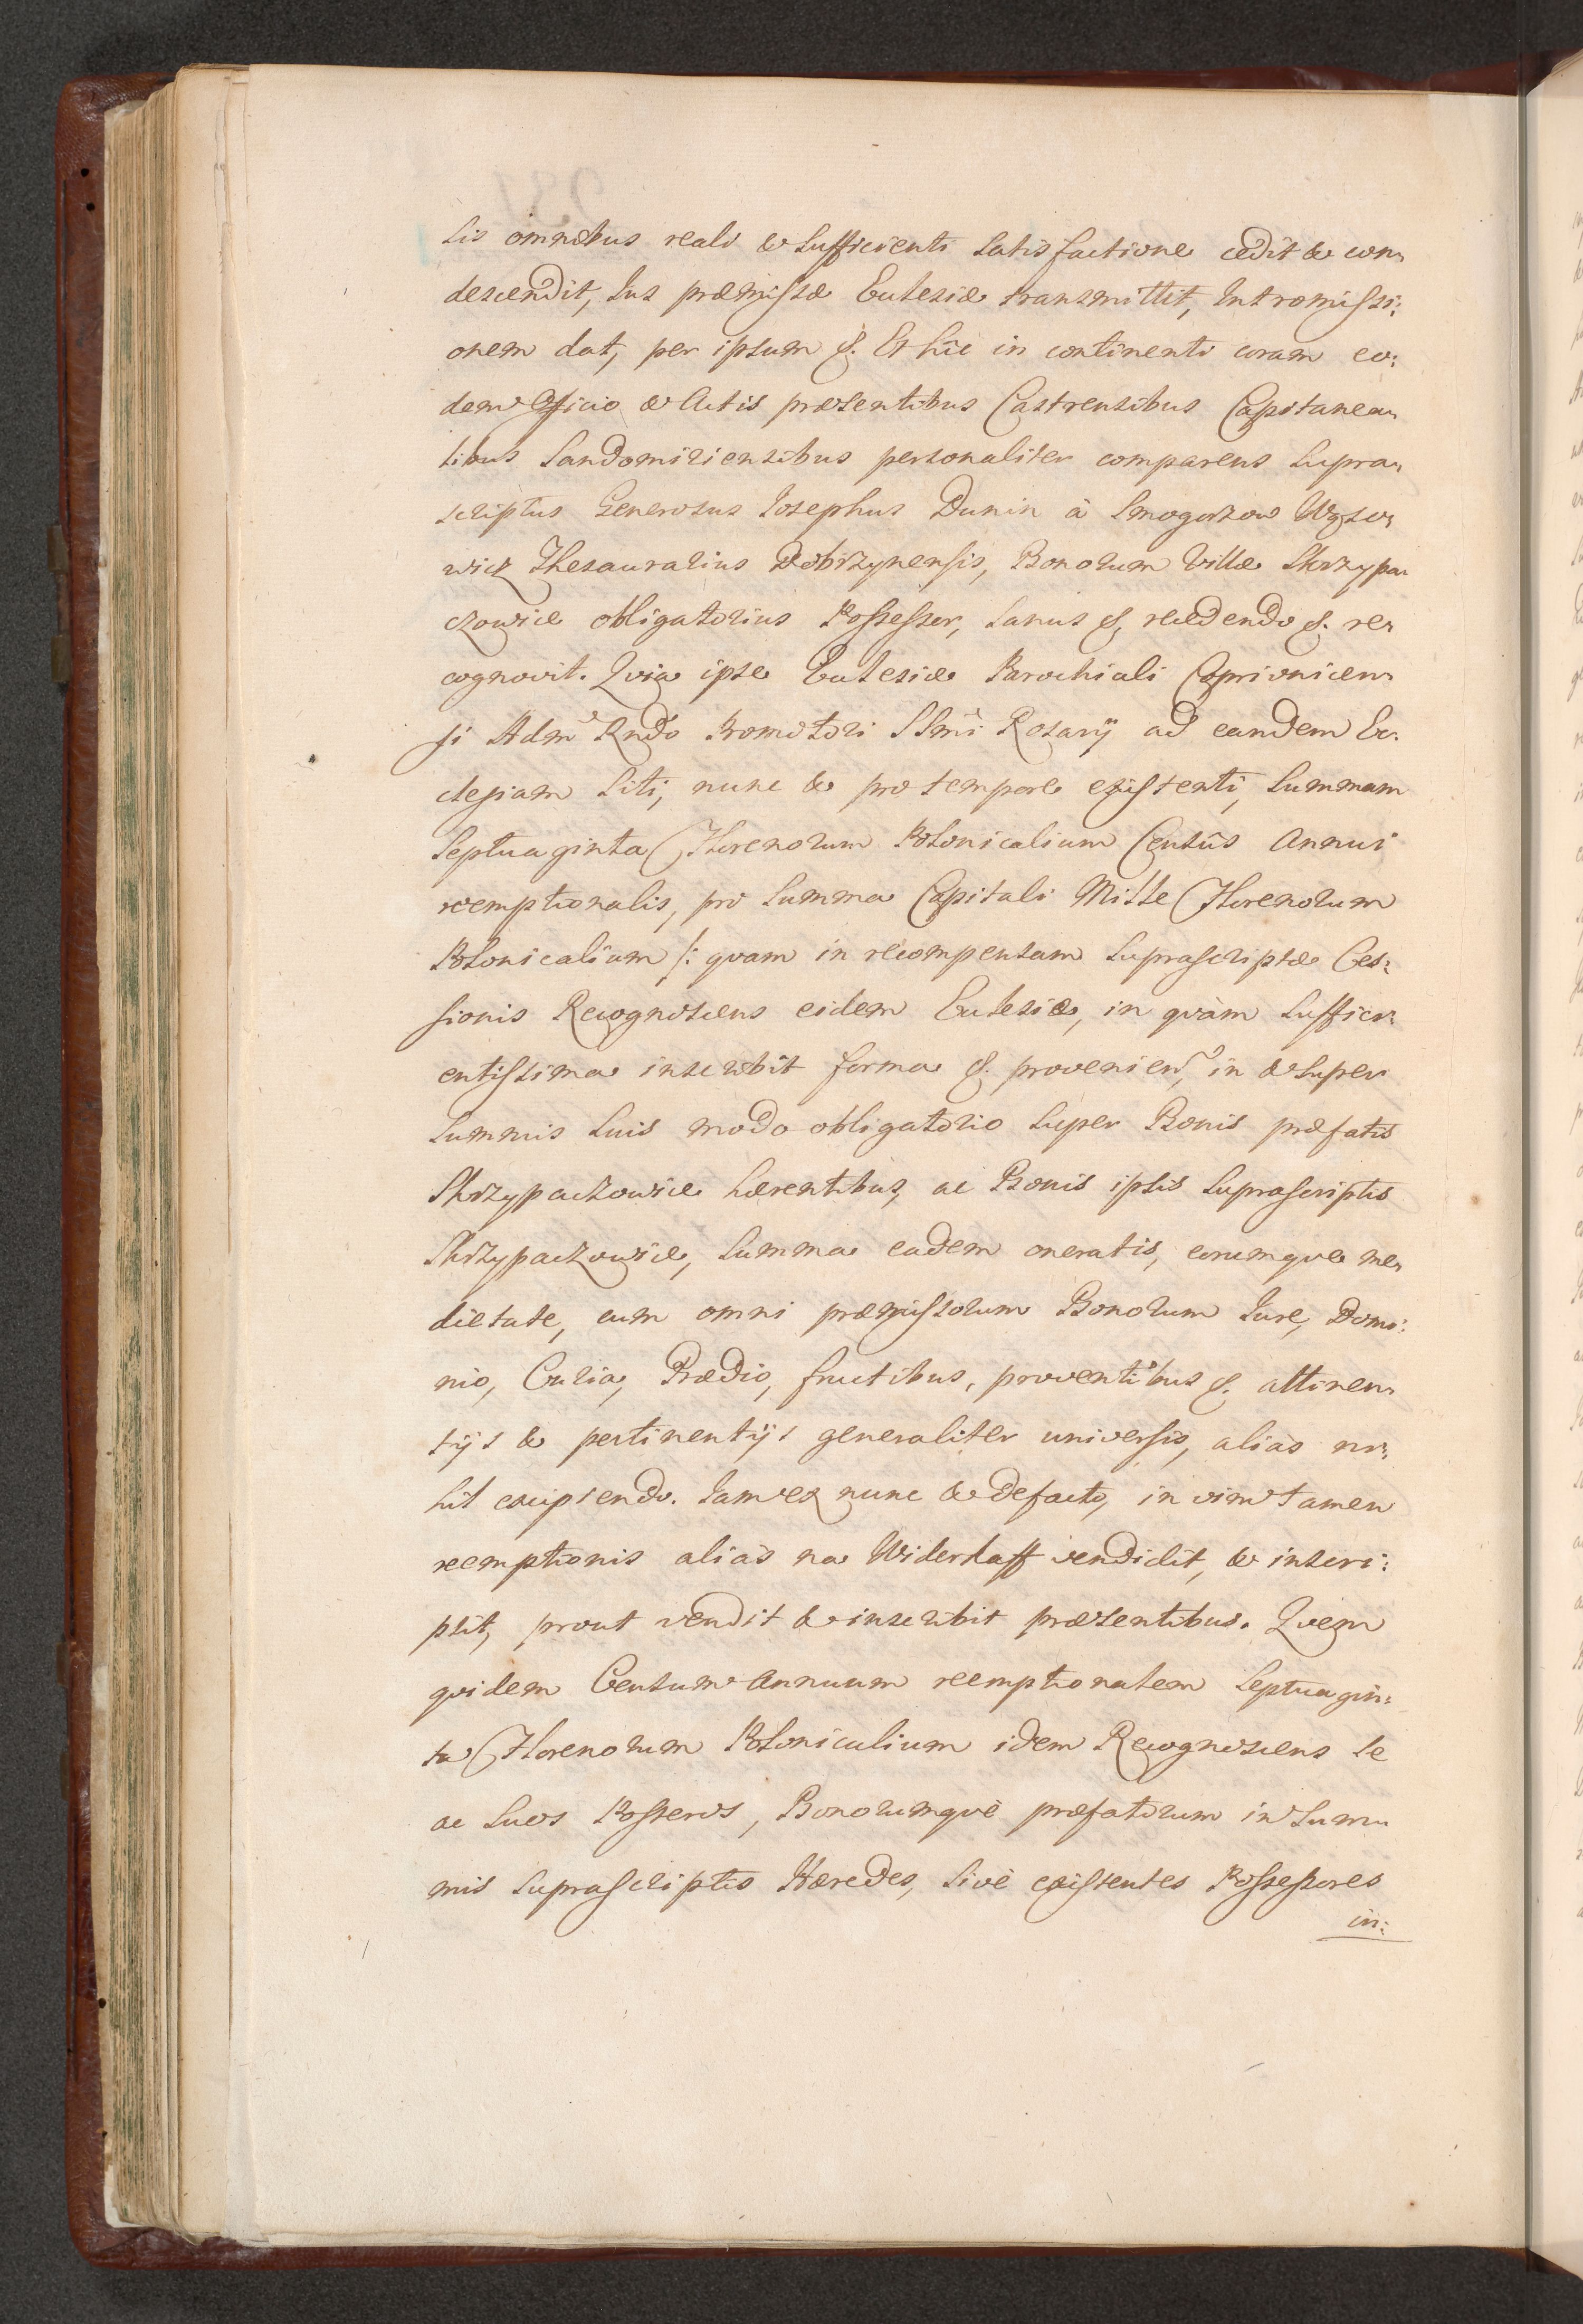 sis omnibus reali & sufficienti satisfactione cedit & con„
descendit, Jus præmissæ Ecclesiæ transmittit, Intromissi:
onem dat, per ipsum &. Et hîc in continenti coram eo:
dem Officio & Actis præsentibus Castrensibus Capitanea„
libus Sandomiriensibus personaliter comparens supra„
scriptus Generosus Josephus Dunin à Smogorzow Wąso„
wicz Thesaurarius Dobrzynensis, Bonorum Villæ Skrzypa„
czowice obligatorius Possessor, sanus &, recedendo &. re„
cognovit. Quia ipse Ecclesiæ Parochiali Coprivnicen„
si Adm Rndo Promotori SSmi Rosarij ad eandem Ec„
clesiam siti, nunc & pro tempore existenti, summam
Septuaginta Florenorum Polonicalium Censûs Annui
reemptionalis, pro summa Capitali Mille Florenorum
Polonicalium /: quam in recompensam suprascriptæ Ces:
sionis Recognoscens eidem Ecclesiæ, in quàm suffici„
entissima inscribit forma &. provenien, in & super
summis suis modo obligatorio super Bonis præfatis
Skrzypaczowice hærentibus, ac Bonis ipsis suprascriptis
Skrzypaczowice, summa eadem oneratis, eorumque me„
dietate, cum omni præmissorum Bonorum Jure, Domi:
nio, Curia, Prædio, fructibus, proventibus &. attinen„
tijs & pertinentijs generaliter universis, aliàs ni„
hil excipiendo. Jam ex nunc & defacto, in vim tamen
reemptionis aliàs na Widerkaff vendidit, & inscri:
psit, prout vendit & inscribit præsentibus. Quem
quidem Censum Annuum reemptionalem Septuagin:
ta Florenorum Polonicalium idem Recognoscens se
ac suos Posteros, Bonorumquè præfatorum in Sum„
mis suprascriptis Hæredes, sivè existentes Possessores
in: